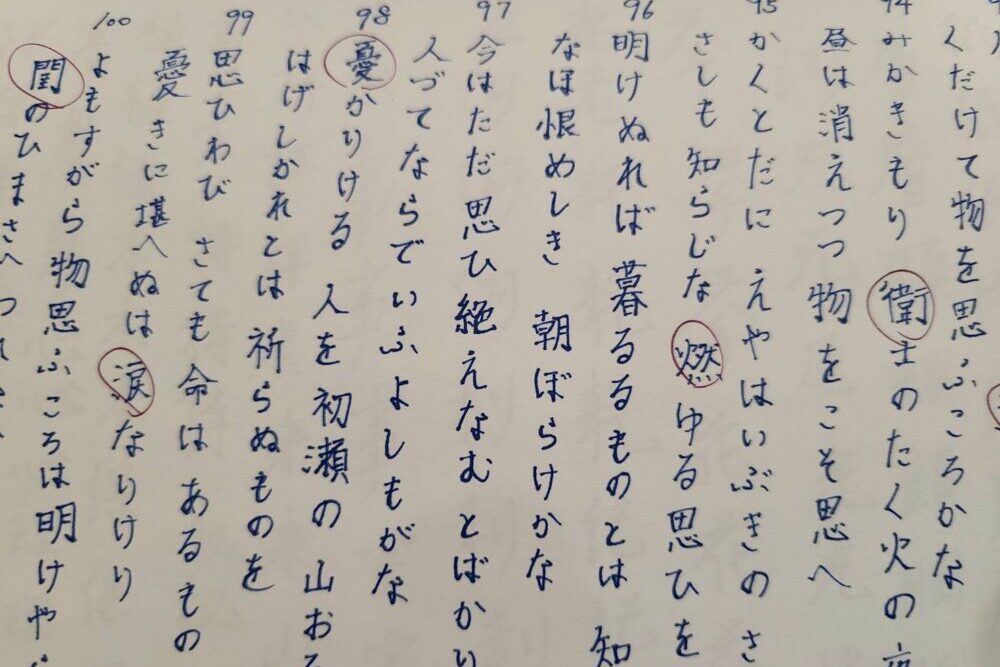 くだけて物を思ふころかな
94
みかきもり 衛士のたく火の
昼は消えつつ物をこそ思へ
95
かくとだに えやはいぶきのさ
さしも知らじな 燃ゆる思ひを
96
明けぬれば 暮るるものとは 知
なほ恨めしき 朝ぼらけかな
97
今はただ思ひ絶えなむとばかり
人づてならで いふよしもがな
98
憂かりける 人を初瀬の 山お
はげしかれとは 祈らぬものを
99
思ひわび さても命は あるもの
憂きに堪へぬは 涙なりけり
100
よもすがら 物思ふころは明けや
閨のひまさへつ